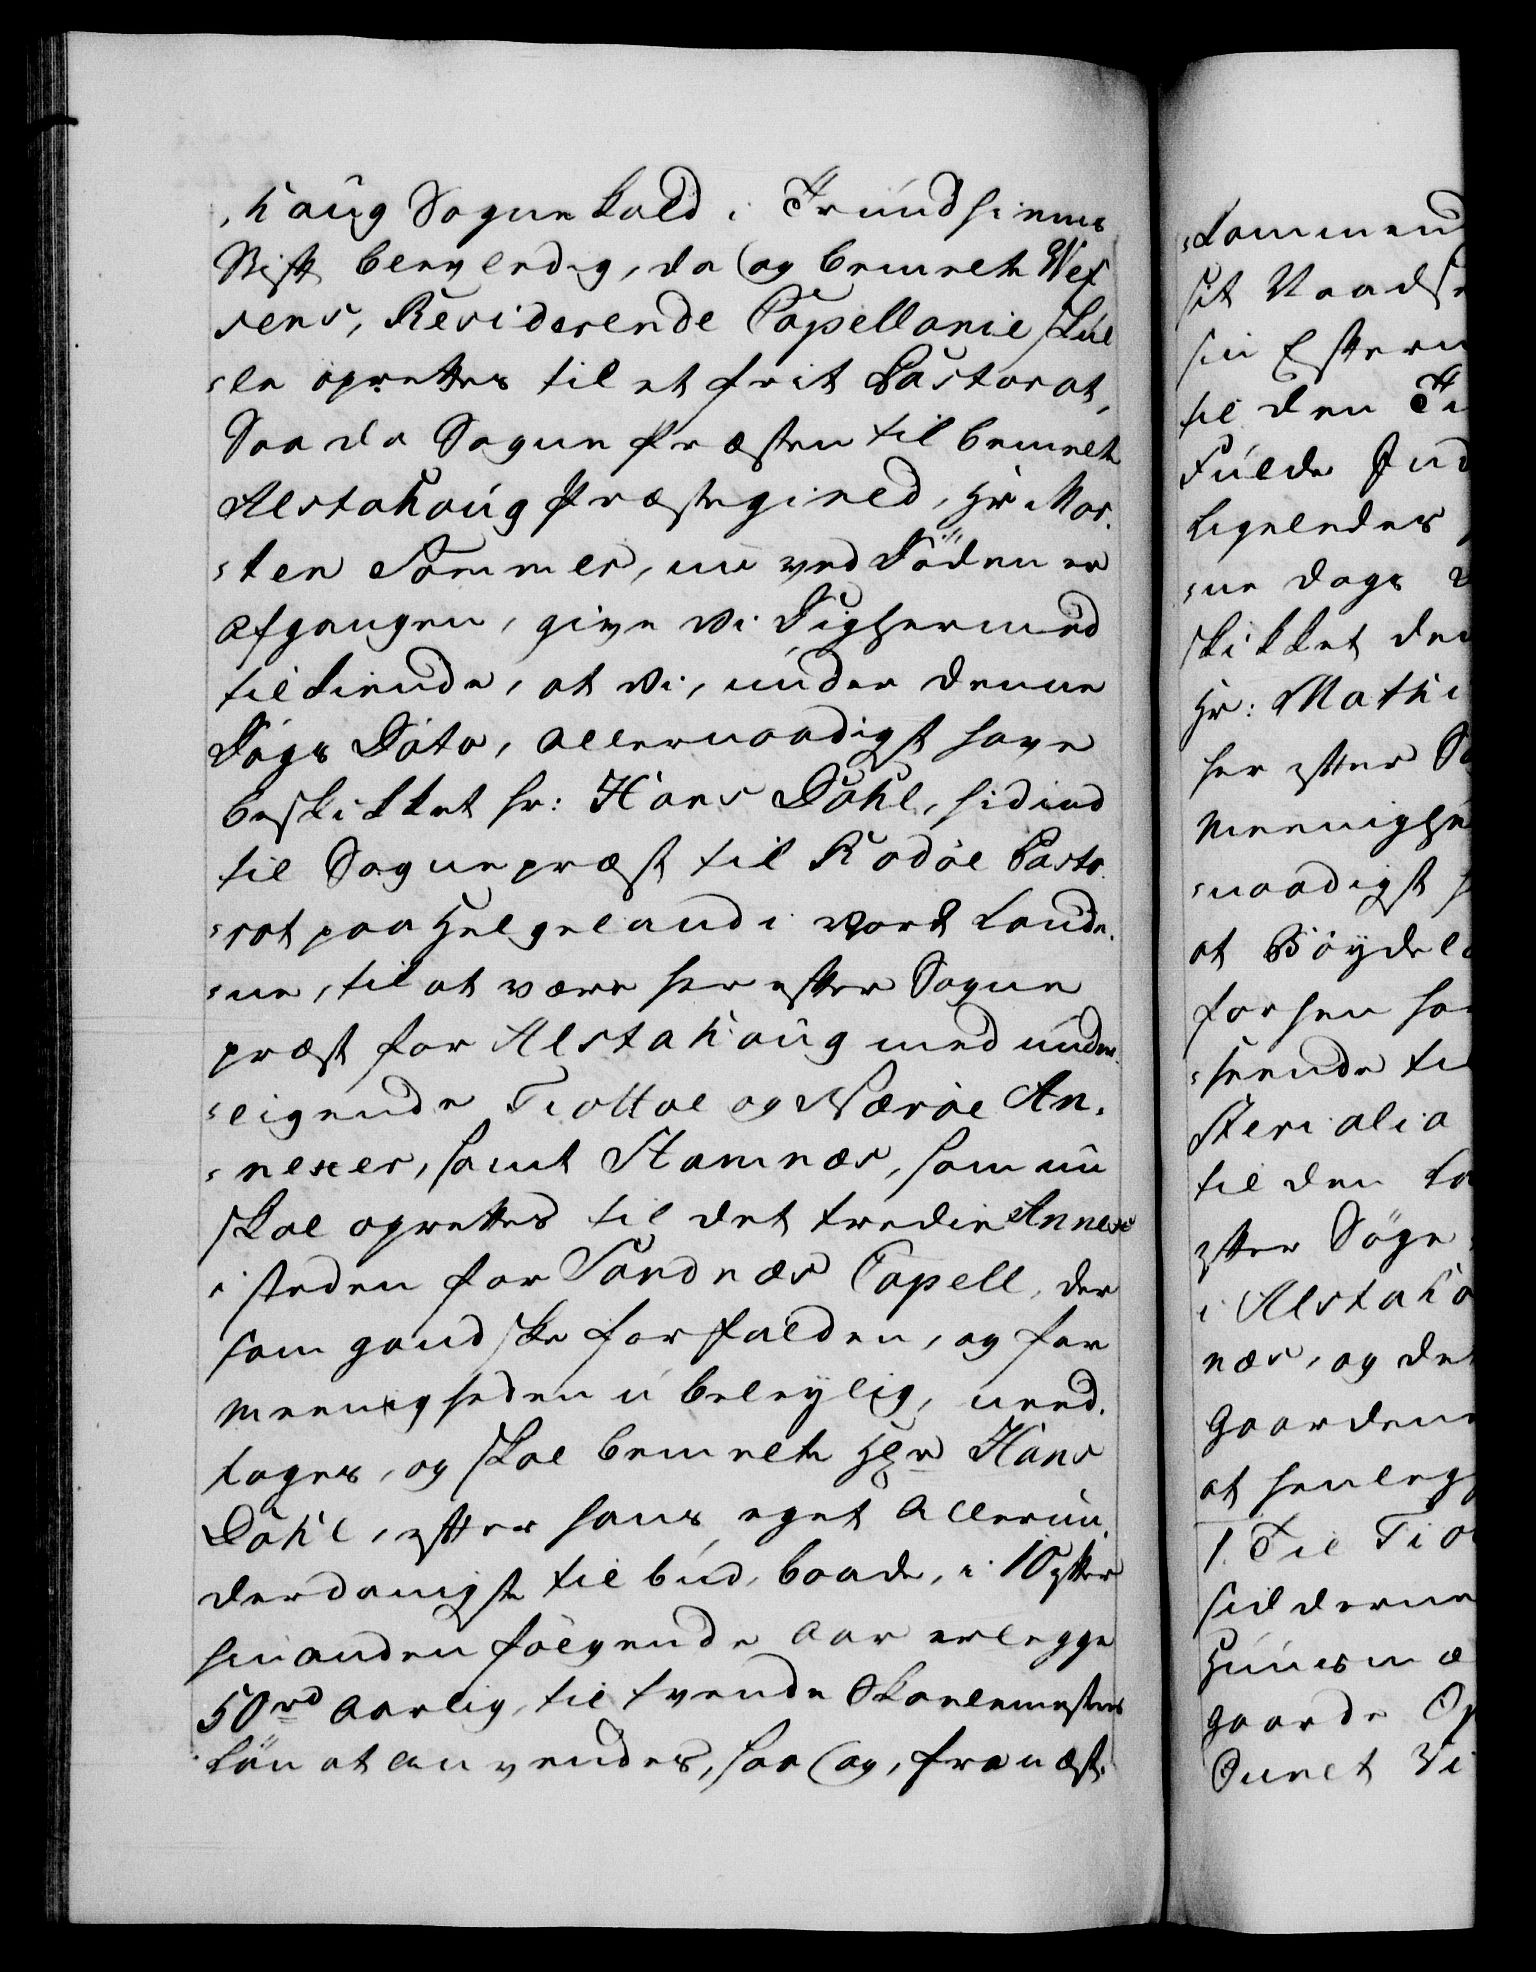 ,haug Sognekald i Trundhiems
Stift beqvemlig, da og bemelte Vef
sens, Residerende Capellanie skul
=le oprettes til et frit Pastorat,
Saa da Sogne Præsten til bemelte
Alstahoug Præstegield, Hr. Mor.
=ten Sommer, nu ved Døden er
afgangen, give Vi Dig hermed
tilkiende, at Vi, under denne
Dags Dato, allernaadigst have
beskikket hr: Hans Dahl, hidind
til Sognepræst til Rødøe Pasto.
=rat paa Helgeland i vort Lands.
=ne, til at være her efter Sogne
præst for Alstahoug med under.
=ligende Tiøttøe og Herøe An.
=nexer, samt Stamnæs, som nu
skal oprettes til det tredie Annex
i steden for Sandnæs Capell, der
som gandske forfalden, og for
Meenigheden ubeleylig, need.
tages, og skal bemelte Hr Hans
Dahl, efter hans eget allerun.
derdanigste tilbud, baade, i 10 efter
hinanden følgende aar erlegge
50 rd aarlig, til tvende Skolemesters
Løn at anvendes, saa og, fra næst.
=kommend
sit Naads
sin Efter
til den
Fulde Ind
ligeledes
=ne dags
skikket den
Hr: Mathi
her efter So
Meenighe
=naadigst h
at Bøydel
forhen ha
=hende til
Sterialia
til den
efter Søge
i Alstaho
næs, og det
Gaardene
at henlegg
1. Til Tiø
silderne
Huusmæ
gaarde Op
Ounet Vi